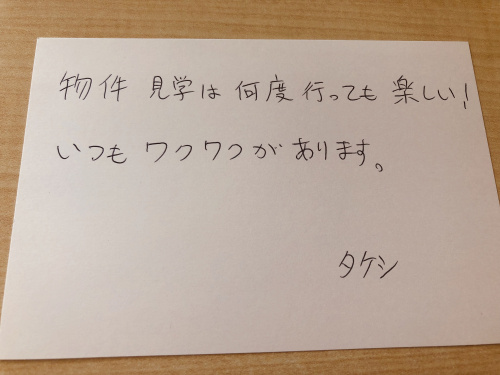 物件 見学は 何度 行っても 楽しい!
いつも ワクワクが あります。
タケシ